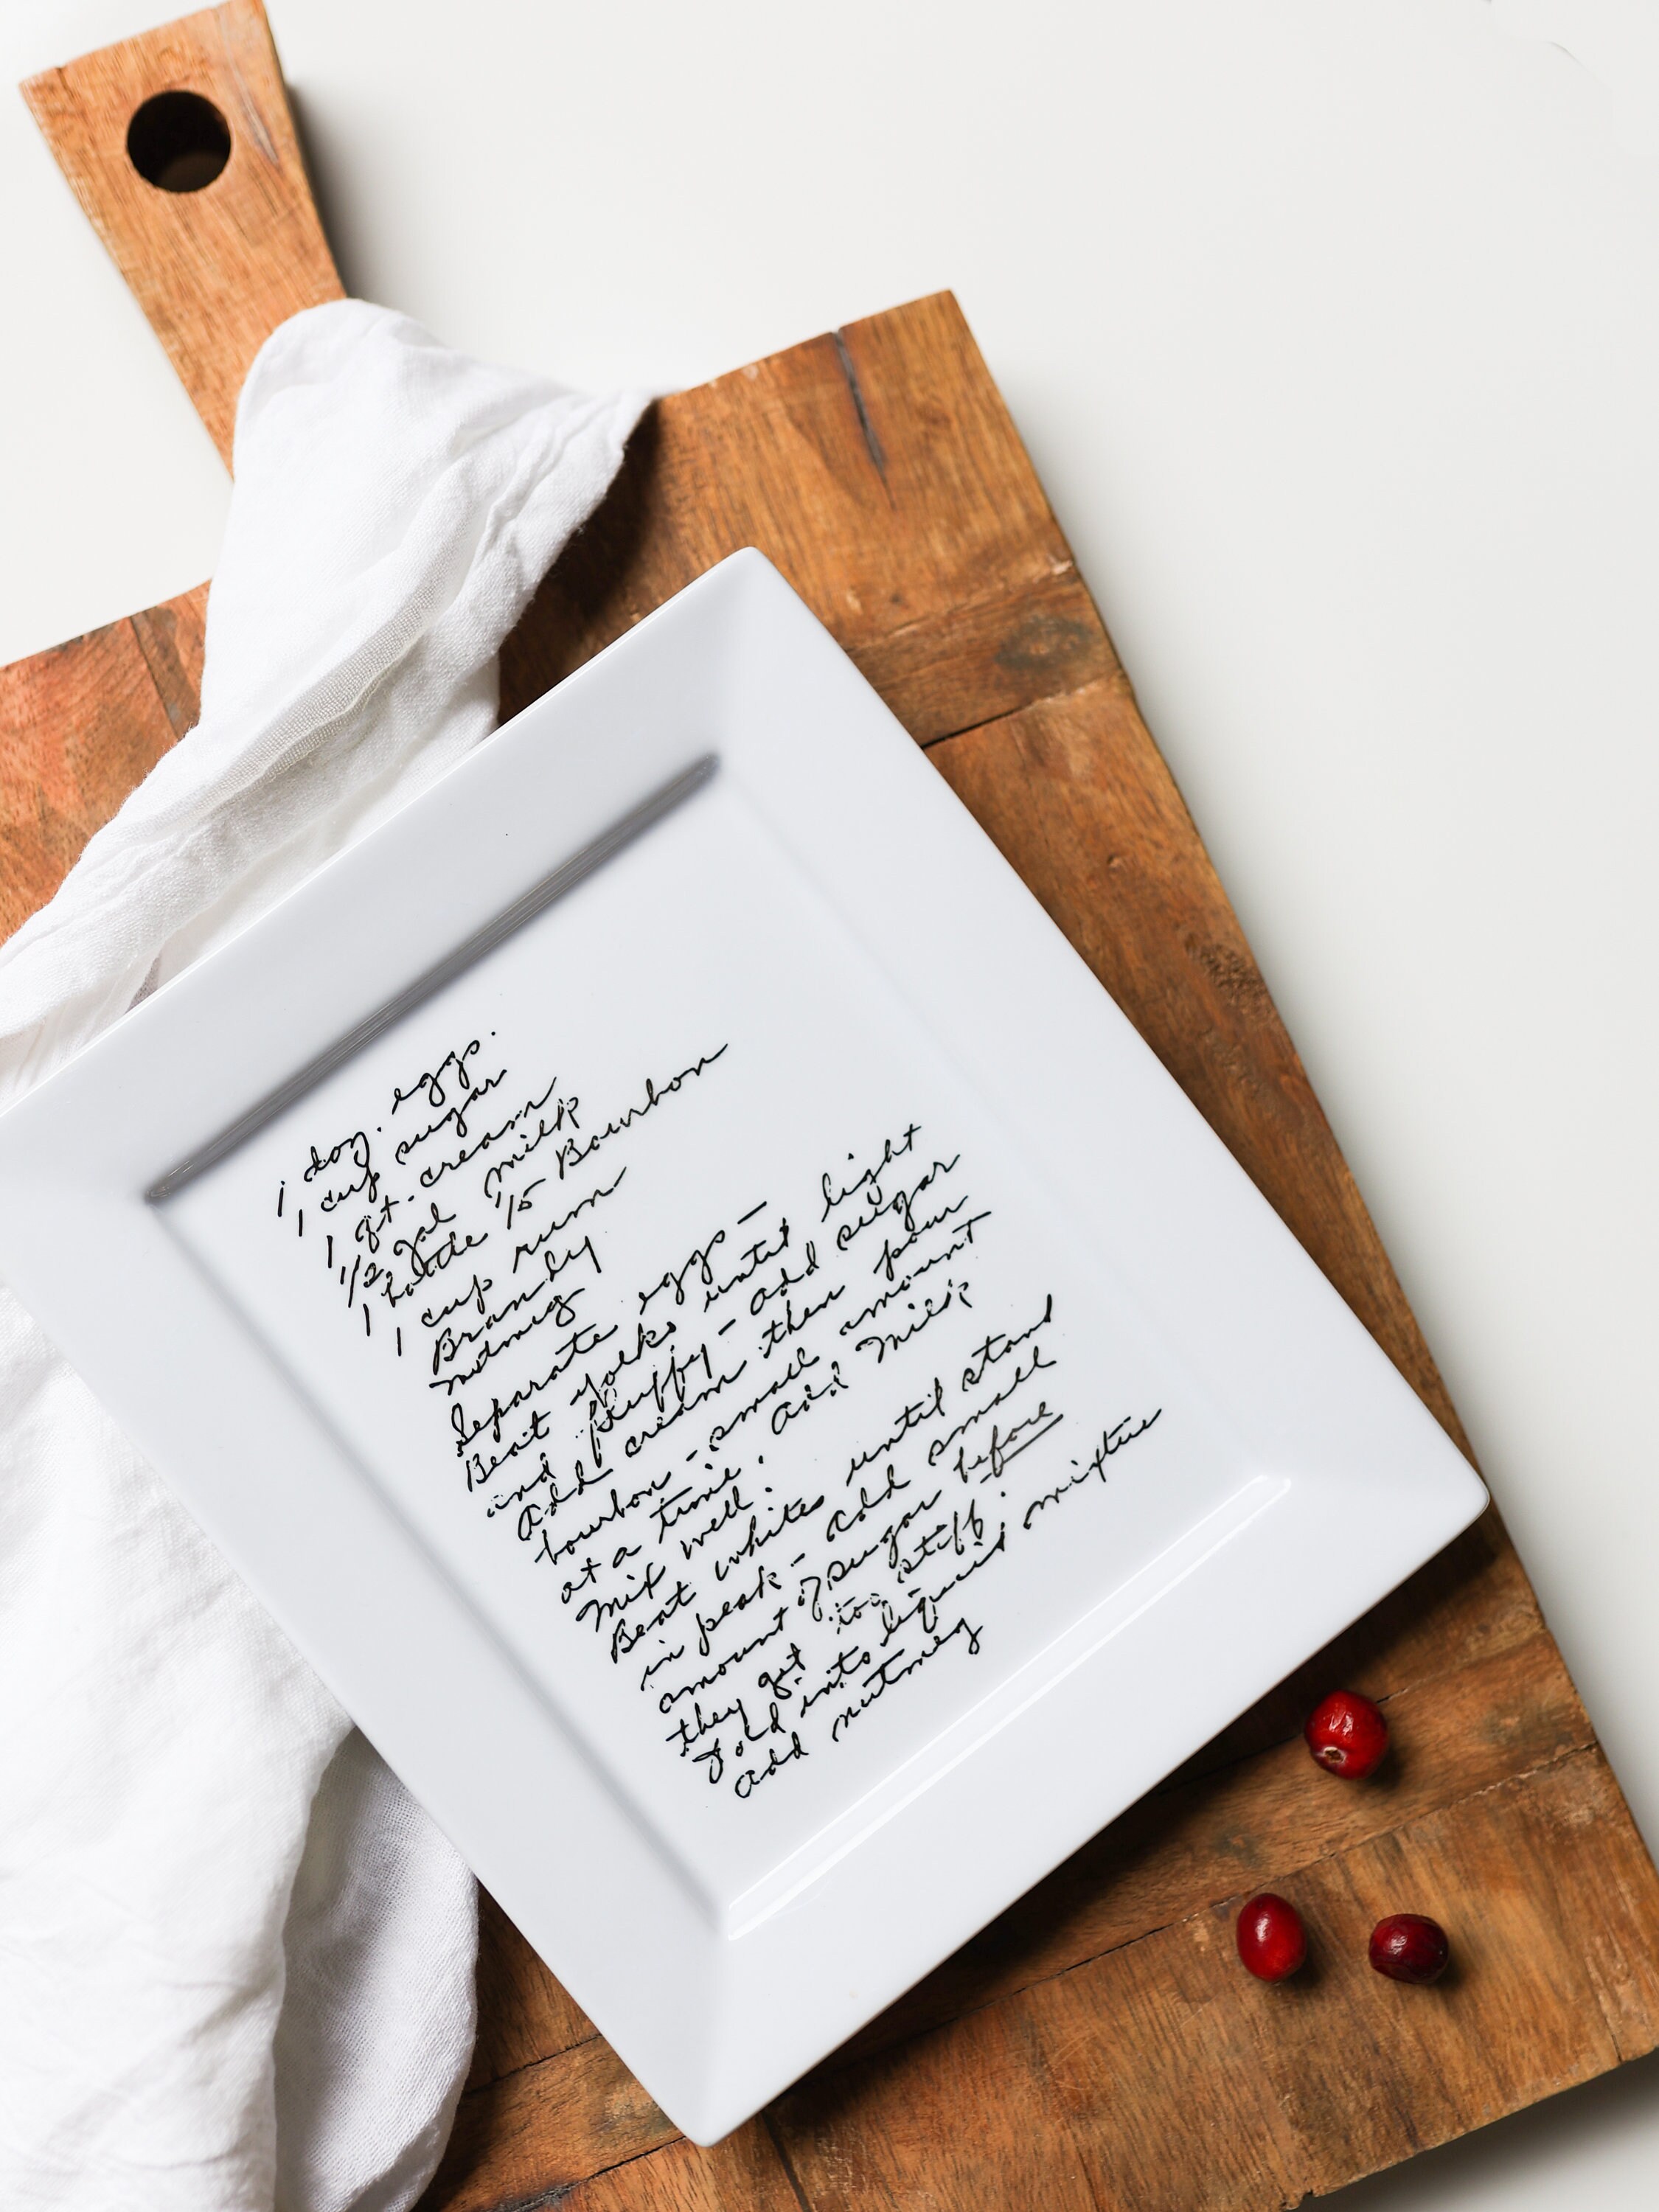 1 doz. eggs.
1 cup sugar
1 qt. cream
1/2 gal milk
1 bottle 1/5 Bourbon
1 cup rum
Brandy
nutmeg
Separate eggs –
Beat yolks until light
and fluffy – add sugar
Add cream then pour
bourbon – small amount
at a time. Add milk
Mix well.
Beat whites until stand
in peak – add small
amount of sugar before
they get too stiff.
Fold into liquid mixture
add nutmeg